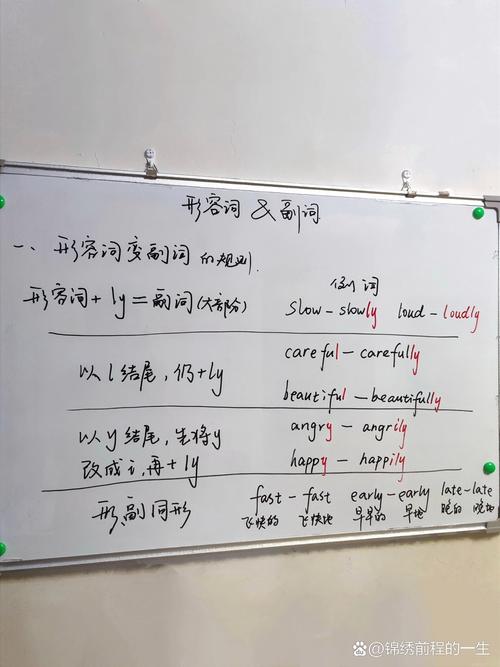 形容词 & 副词
一、形容词变副词的规则.
例词
形容词 + ly = 副词(大部分) slow - slowly loud - loudly
careful - carefully
以l结尾,仍+ly
beautiful - beautifully
以y结尾,先将y angry - angrily
改成i,再+ly happy - happily
形,副同形 fast - fast early - early late - late
飞快的 飞快地 早早的 早地 晚的 晚地
@锦绣前程的一生